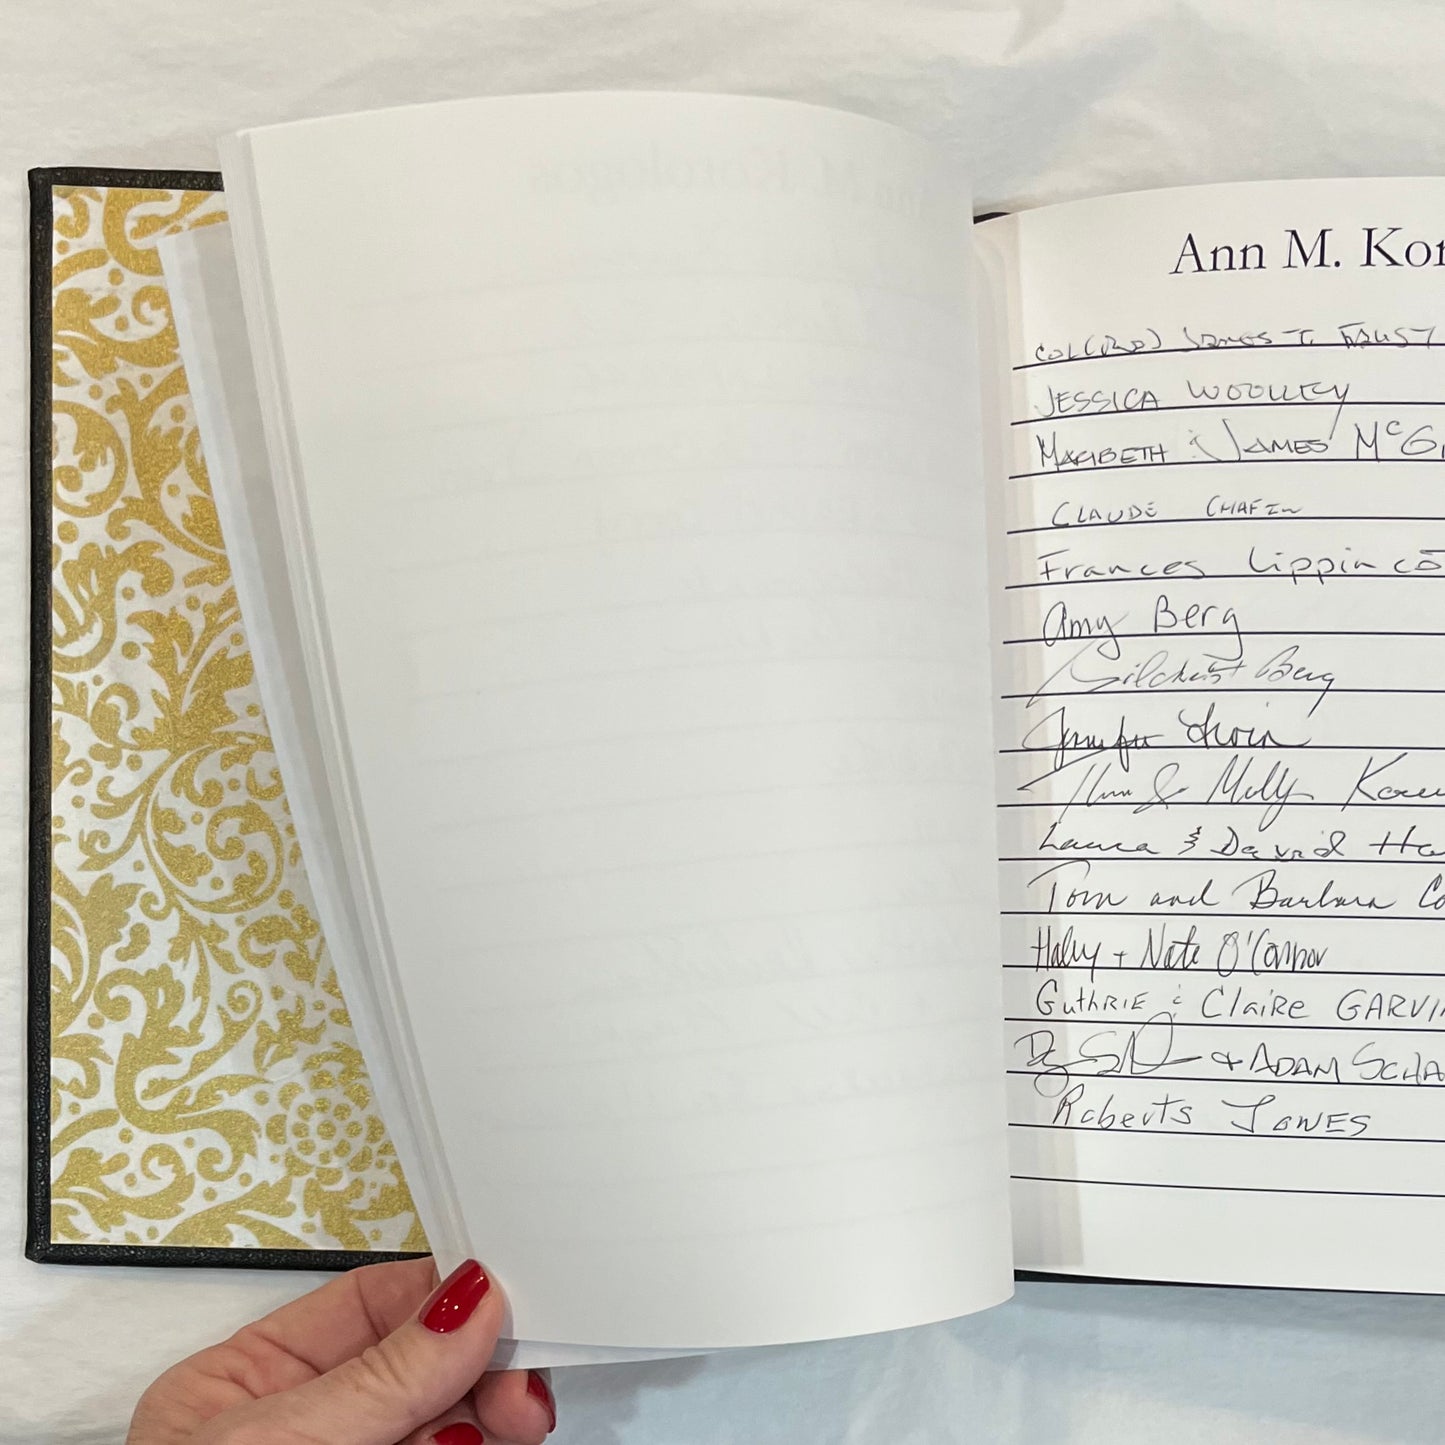 Ann M. Kor
COL(RET) JAMES T. FAUST
JESSICA WOOLLEY
MARIBETH & JAMES McGi
CLAUDE CHAFIN
Frances Lippinco
Amy Berg
Gilchrist Berg
Jennifer
& Molly
Laura & David Ha
Tom and Barbara Co
Haley + Nate O'Connor
GuthRIE & ClaiRe GARVIN
+ ADAM SCHA
Roberts JONES